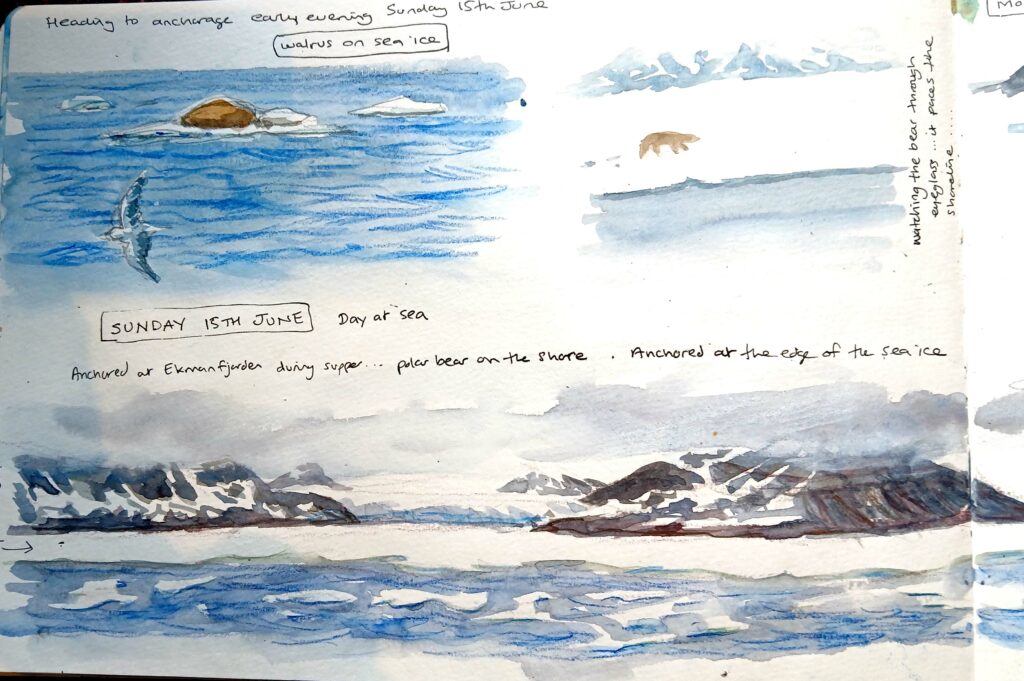 Heading to anchorage early evening Sunday 15th June
walrus on sea ice
watching the bear through
eyeglass... it paces the
shoreline .....
SUNDAY 15TH JUNE Day at sea
Anchored at Ekmanfjorden during supper... polar bear on the shore . Anchored at the edge of the sea ice